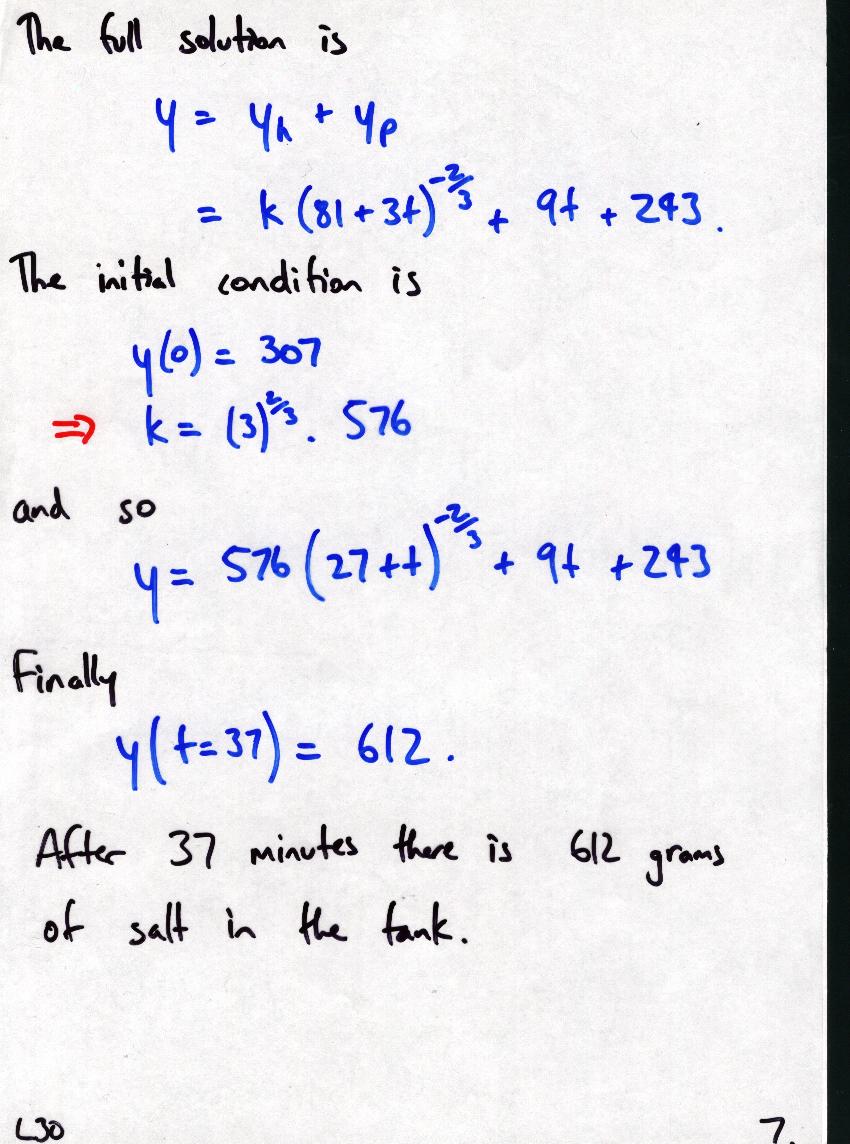 The full solution is
y = yₕ + yₚ
= k(81+3t)^{-2/3} + 9t + 243.
The initial condition is
y(0) = 307
⇒ k = (3)^{2/3} . 576
and so
y = 576(27+t)^{-2/3} + 9t + 243
Finally
y(t=37) = 612.
After 37 minutes there is 612 grams
of salt in the tank.
L30 7.